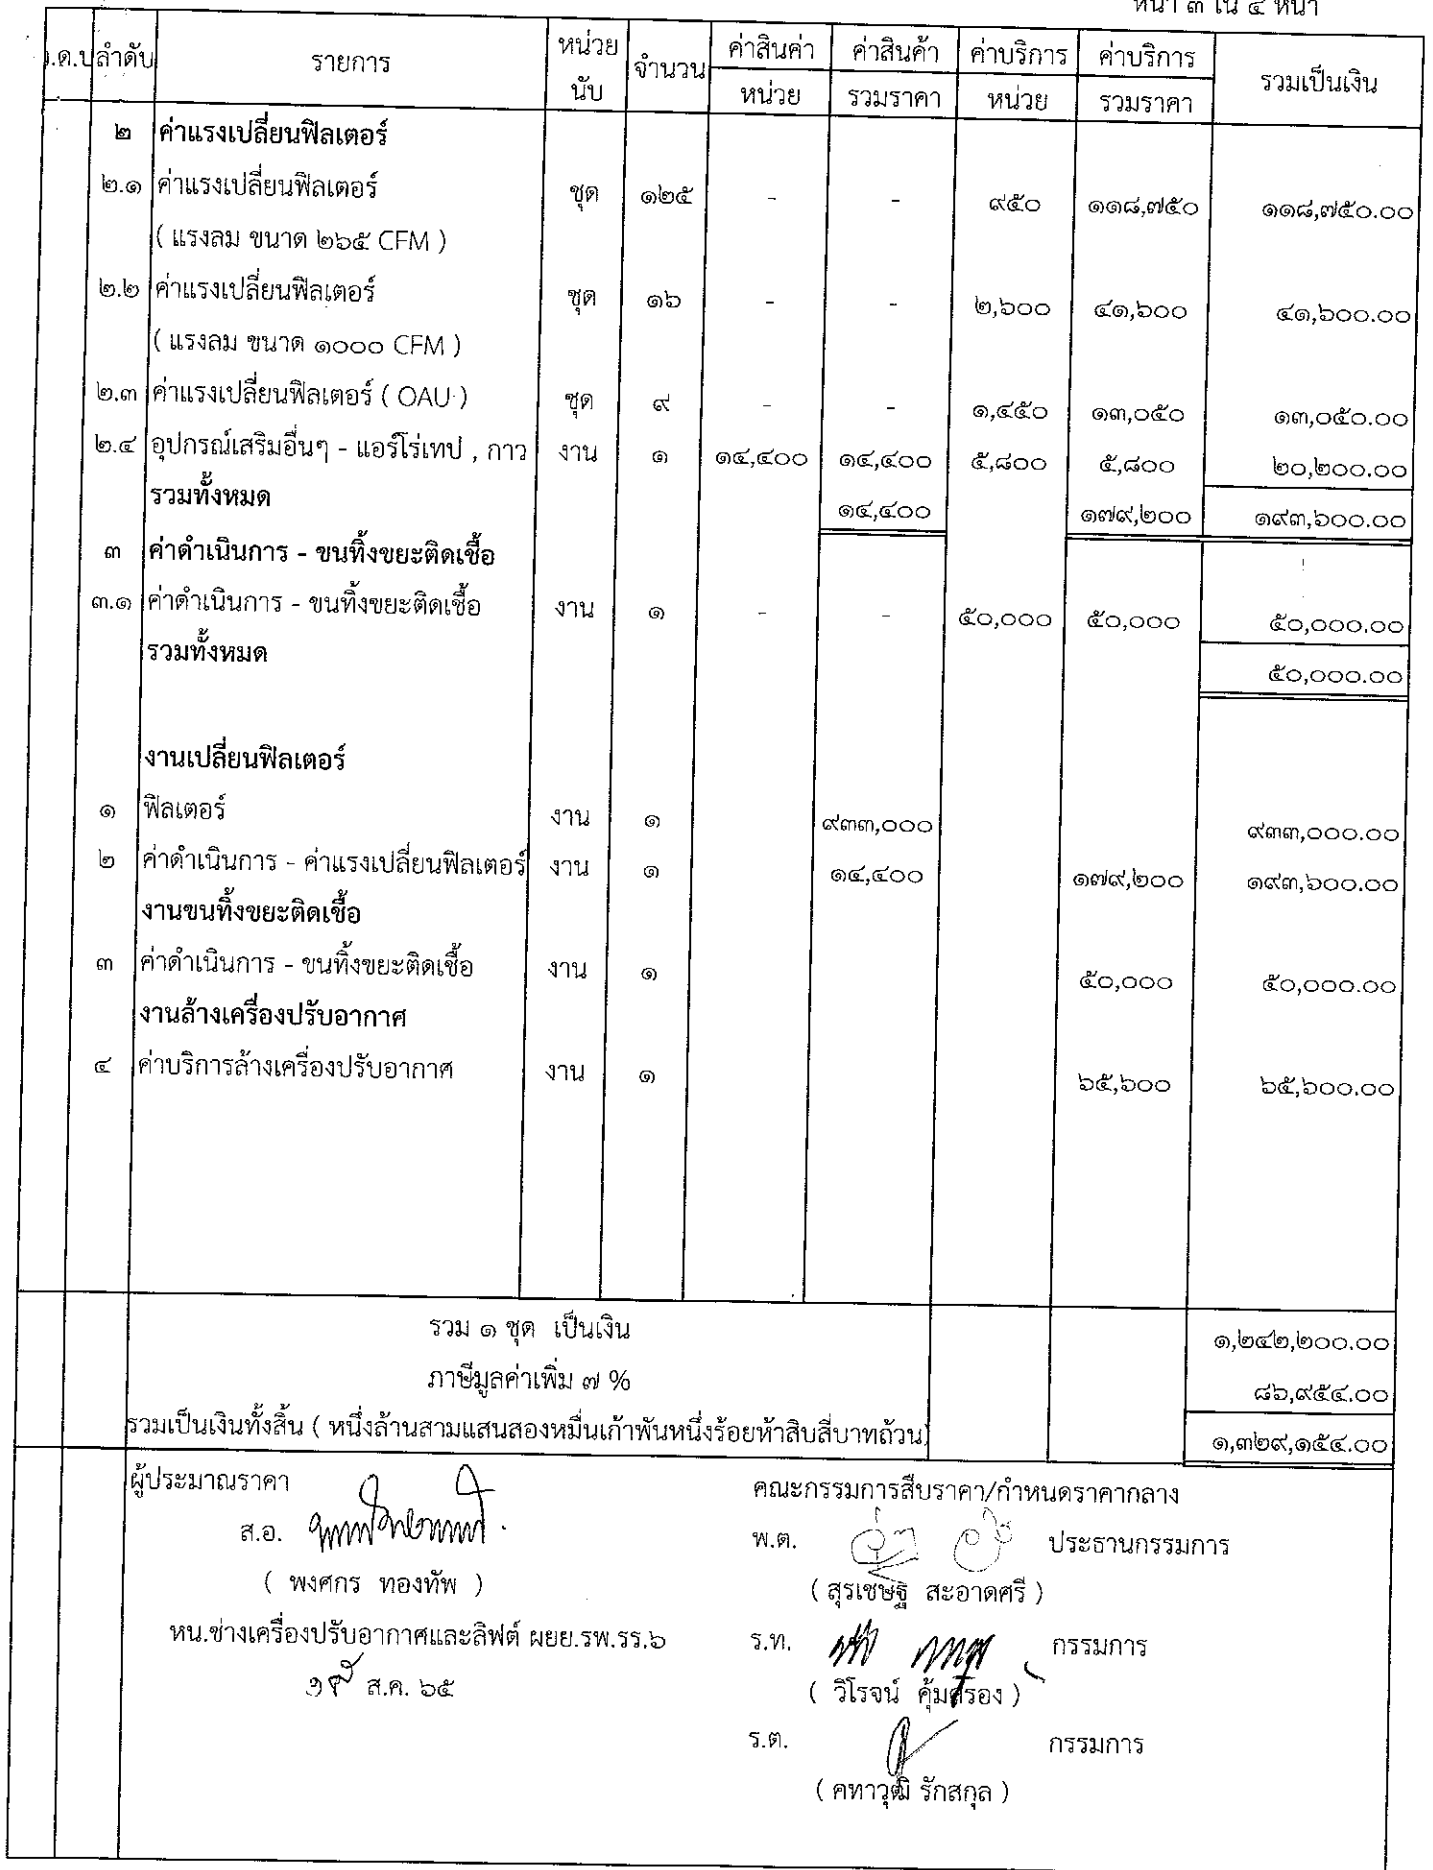 หน้า ๓ ใน ๔ หน้า
ว.ด.ป ลำดับ รายการ หน่วยนับ จำนวน ค่าสินค่า หน่วย ค่าสินค้า รวมราคา ค่าบริการ หน่วย ค่าบริการ รวมราคา รวมเป็นเงิน
๒ ค่าแรงเปลี่ยนฟิลเตอร์
๒.๑ ค่าแรงเปลี่ยนฟิลเตอร์ ชุด ๑๒๕ - - ๙๕๐ ๑๑๘,๗๕๐ ๑๑๘,๗๕๐.๐๐
( แรงลม ขนาด ๒๖๕ CFM )
๒.๒ ค่าแรงเปลี่ยนฟิลเตอร์ ชุด ๑๖ - - ๒,๖๐๐ ๔๑,๖๐๐ ๔๑,๖๐๐.๐๐
( แรงลม ขนาด ๑๐๐๐ CFM )
๒.๓ ค่าแรงเปลี่ยนฟิลเตอร์ ( OAU ) ชุด ๙ - - ๑,๔๕๐ ๑๓,๐๕๐ ๑๓,๐๕๐.๐๐
๒.๔ อุปกรณ์เสริมอื่นๆ - แอร์โร่เทป , กาว งาน ๑ ๑๔,๔๐๐ ๑๔,๔๐๐ ๕,๘๐๐ ๕,๘๐๐ ๒๐,๒๐๐.๐๐
รวมทั้งหมด ๑๔,๔๐๐ ๑๗๙,๒๐๐ ๑๙๓,๖๐๐.๐๐
๓ ค่าดำเนินการ - ขนทิ้งขยะติดเชื้อ
๓.๑ ค่าดำเนินการ - ขนทิ้งขยะติดเชื้อ งาน ๑ - - ๕๐,๐๐๐ ๕๐,๐๐๐ ๕๐,๐๐๐.๐๐
รวมทั้งหมด ๕๐,๐๐๐.๐๐
งานเปลี่ยนฟิลเตอร์
๑ ฟิลเตอร์ งาน ๑ ๙๓๓,๐๐๐ ๙๓๓,๐๐๐.๐๐
๒ ค่าดำเนินการ - ค่าแรงเปลี่ยนฟิลเตอร์ งาน ๑ ๑๔,๔๐๐ ๑๗๙,๒๐๐ ๑๙๓,๖๐๐.๐๐
งานขนทิ้งขยะติดเชื้อ
๓ ค่าดำเนินการ - ขนทิ้งขยะติดเชื้อ งาน ๑ ๕๐,๐๐๐ ๕๐,๐๐๐.๐๐
งานล้างเครื่องปรับอากาศ
๔ ค่าบริการล้างเครื่องปรับอากาศ งาน ๑ ๖๕,๖๐๐ ๖๕,๖๐๐.๐๐
รวม ๑ ชุด เป็นเงิน ๑,๒๔๒,๒๐๐.๐๐
ภาษีมูลค่าเพิ่ม ๗ % ๘๖,๙๕๔.๐๐
รวมเป็นเงินทั้งสิ้น ( หนึ่งล้านสามแสนสองหมื่นเก้าพันหนึ่งร้อยห้าสิบสี่บาทถ้วน) ๑,๓๒๙,๑๕๔.๐๐
ผู้ประมาณราคา
ส.อ.
( พงศกร ทองทัพ )
หน.ช่างเครื่องปรับอากาศและลิฟต์ ผยย.รพ.รร.๖
ส.ค. ๖๕
คณะกรรมการสืบราคา/กำหนดราคากลาง
พ.ต. ประธานกรรมการ
( สุรเชษฐ์ สะอาดศรี )
ร.ท. กรรมการ
( วิโรจน์ คุ้มครอง )
ร.ต. กรรมการ
( คทาวุฒิ รักสกุล )